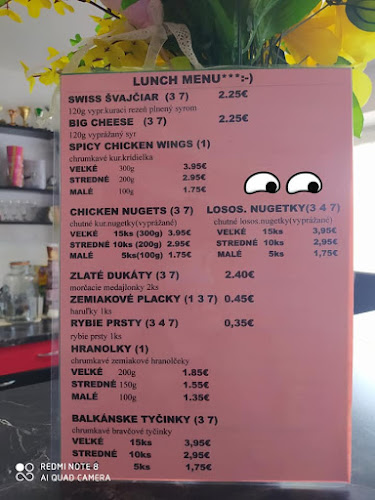 LUNCH MENU***:-)
SWISS ŠVAJČIAR (3 7) 2.25€
120g vypr.kuraci rezeň plnený syrom
BIG CHEESE (3 7) 2.25€
120g vyprážaný syr
SPICY CHICKEN WINGS (1)
chrumkavé kur.krídielka
VEĽKÉ 300g 3.95€
STREDNÉ 200g 2.95€
MALÉ 100g 1.75€
CHICKEN NUGETS (3 7) LOSOS. NUGETKY(3 4 7)
chutné kur.nugetky(vyprážané) chutné losos.nugetky(vyprážané)
VEĽKÉ 15ks (300g) 3.95€ VEĽKÉ 15ks 3,95€
STREDNÉ 10ks (200g) 2.95€ STREDNÉ 10ks 2,95€
MALÉ 5ks(100g) 1.75€ MALÉ 5ks 1,75€
ZLATÉ DUKÁTY (3 7) 2.40€
morčacie medajlonky 2ks
ZEMIAKOVÉ PLACKY (1 3 7) 0.45€
haruľky 1ks
RYBIE PRSTY (3 4 7) 0,35€
rybie prsty 1ks
HRANOLKY (1)
chrumkavé zemiakové hranolčeky
VEĽKÉ 200g 1.85€
STREDNÉ 150g 1.55€
MALÉ 100g 1.35€
BALKÁNSKE TYČINKY (3 7)
chrumkavé bravčové tyčinky
VEĽKÉ 15ks 3,95€
STREDNÉ 10ks 2,95€
5ks 1,75€
REDMI NOTE 8
AI QUAD CAMERA